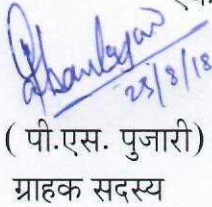 25/8/18
( पी.एस. पुजारी)
ग्राहक सदस्य